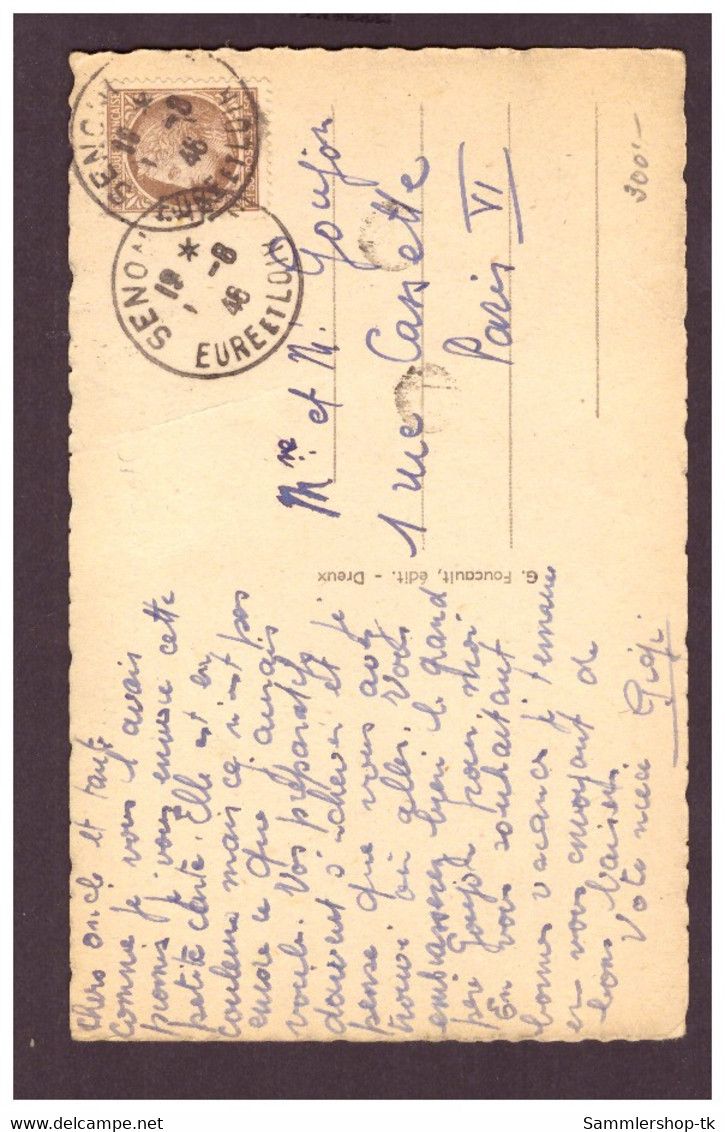 Chers oncle et tante
comme je vous l'avais
promis je vous envoie cette
petite carte. Elle est en
couleurs mais ce n'est pas
encore ce que j'aurais
voulu. Vos préparatifs
doivent s'achever et je
pense que vous avez
trouvé où aller. Vous
embrasserez bien le grand
père Goujon pour moi
En vous souhaitant
bonnes vacances je termine
en vous envoyant de
bons baisers
Votre nièce
Gigi
G. Foucault, édit. - Dreux
Mme et M. Goujon
1 rue Cassette
Paris VI
300.-
SENON
EURE ET LOIR
SENON
* 19
-8
46
EURE ET LOIR
Sammlershop-tk